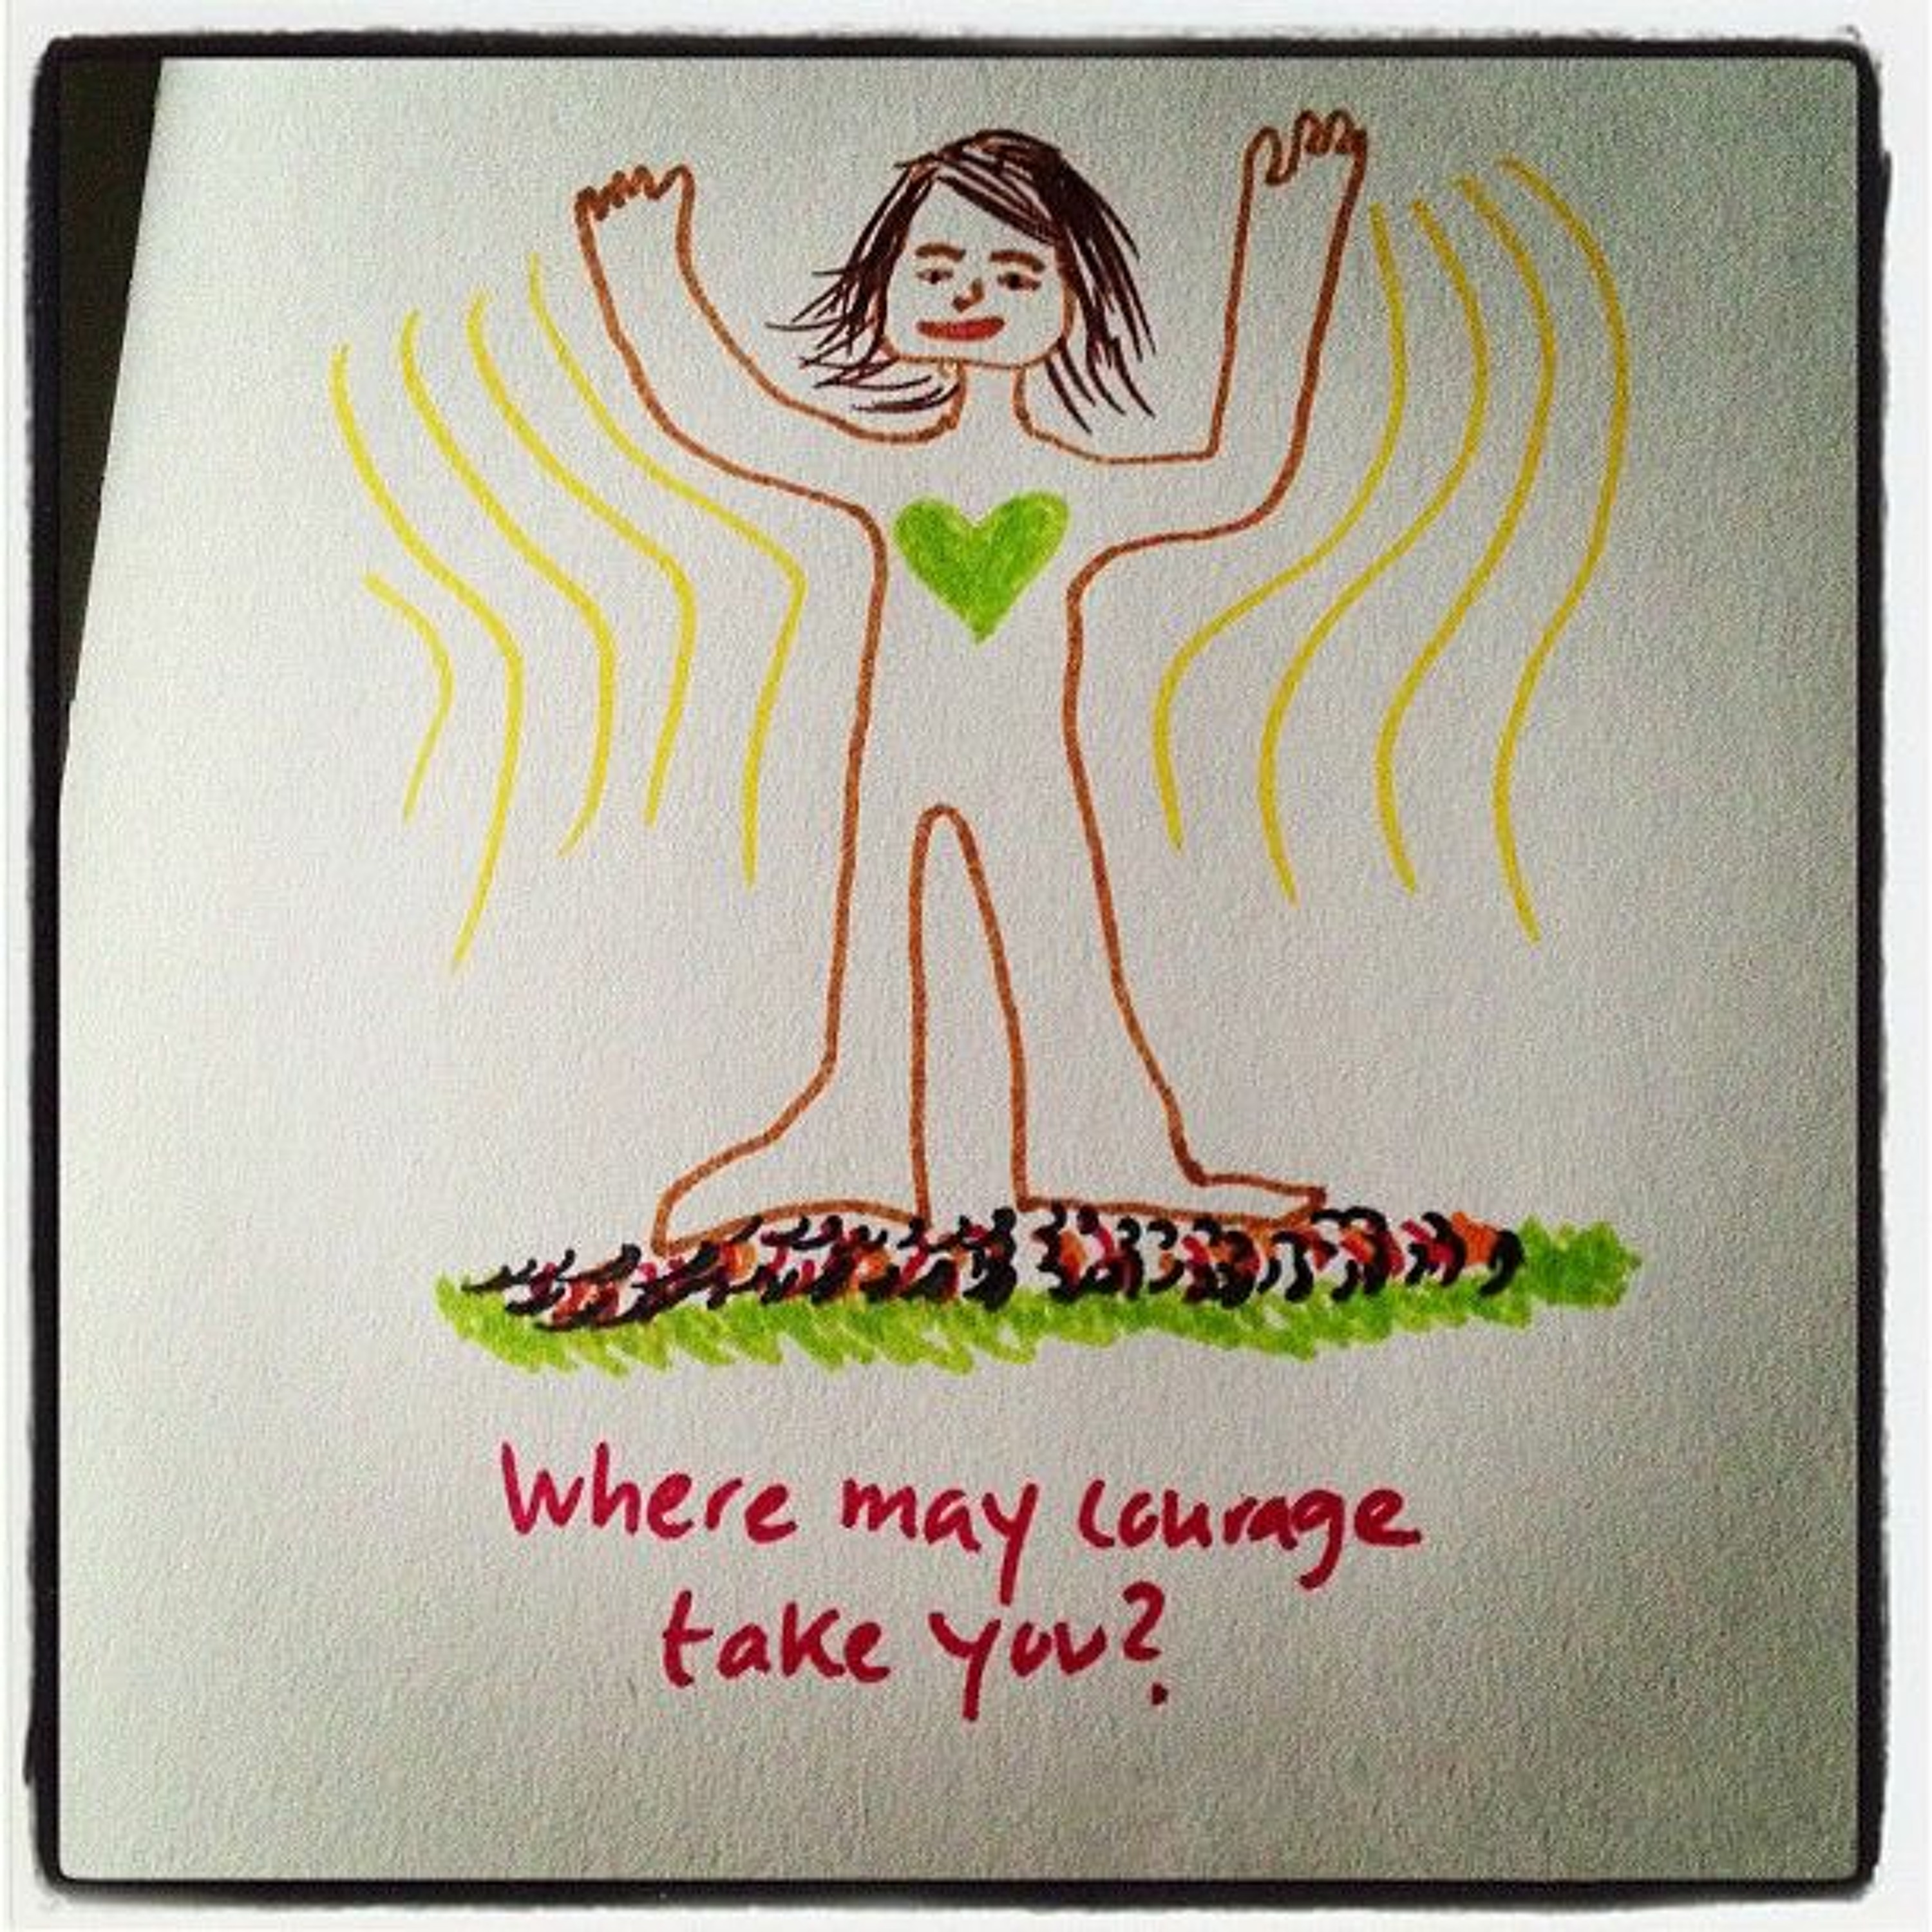 Where may courage
take you?